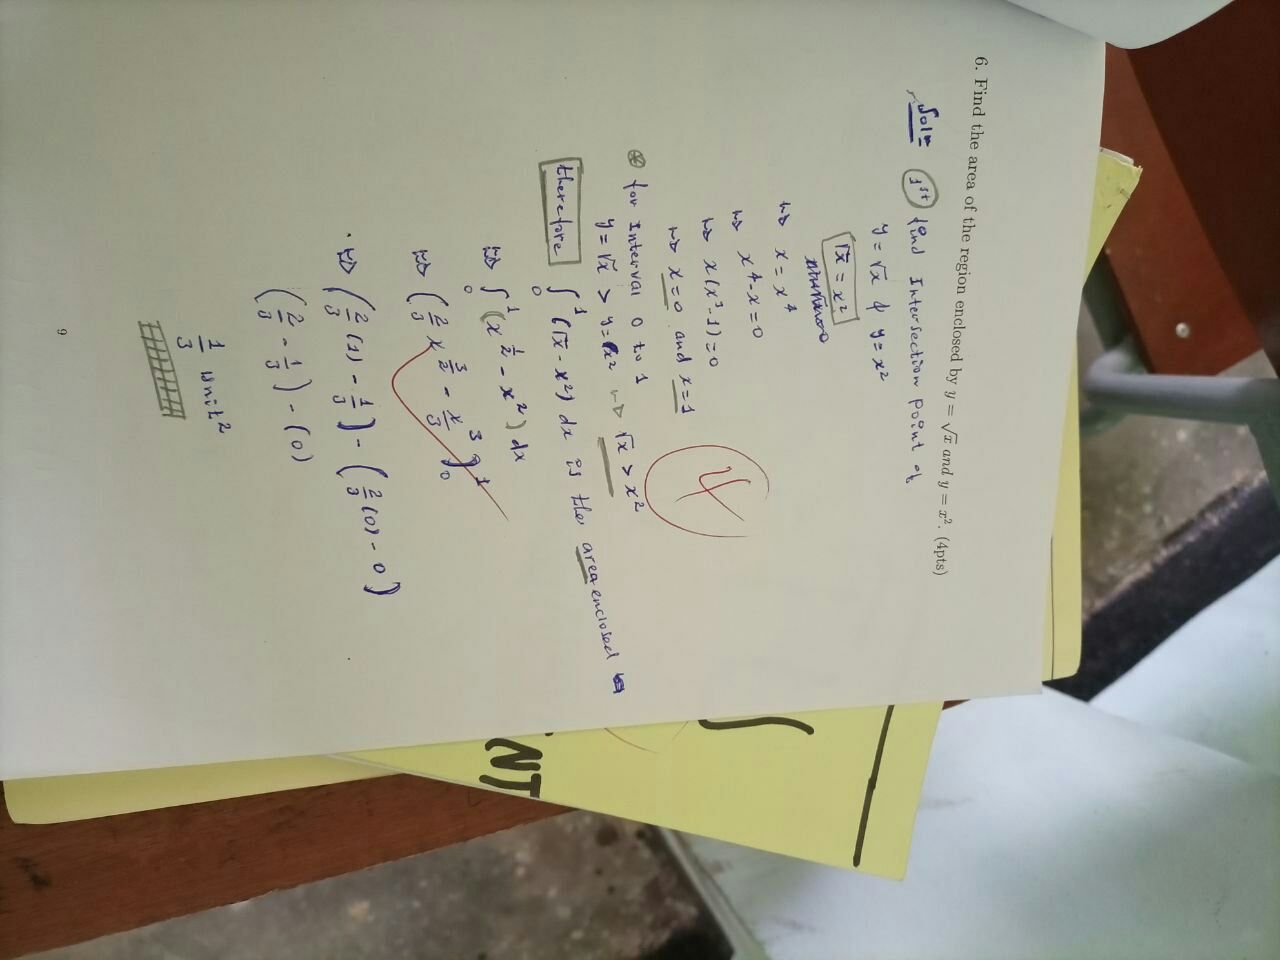 6. Find the area of the region enclosed by y = √x and y = x². (4pts)
Soln 1st find Intersection point of
y = √x & y = x²
√x = x²
⇒ x = x⁴
⇒ x⁴ - x = 0
⇒ x(x³ - 1) = 0
⇒ x = 0 and x = 1
4
⊛ for Interval 0 to 1
y = √x > y = x² ⇒ √x > x²
therefore ∫₀¹ (√x - x²) dx is the area enclosed
⇒ ∫₀¹ (x^½ - x²) dx
⇒ (2/3 x^3/2 - x³/3)₀¹
⇒ (2/3 (1) - 1/3) - (2/3 (0) - 0)
(2/3 - 1/3) - (0)
1/3 unit²
9
NT
S